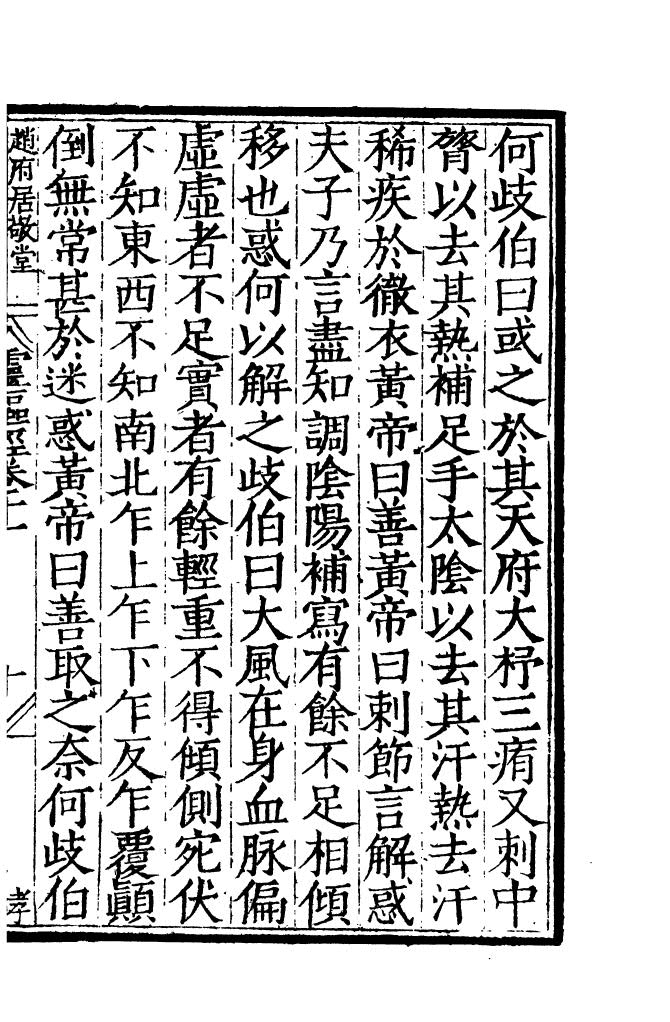 何歧伯曰或之於其天府大杼三痏又刺中
膂以去其熱補足手太陰以去其汗熱去汗
稀疾於徹衣黃帝曰善黃帝曰刺節言解惑
夫子乃言盡知調陰陽補寫有餘不足相傾
移也惑何以解之歧伯曰大風在身血脉偏
虛虛者不足實者有餘輕重不得傾側宛伏
不知東西不知南北乍上乍下乍反乍覆顚
倒無常甚於迷惑黃帝曰善取之奈何歧伯
趙府居敬堂